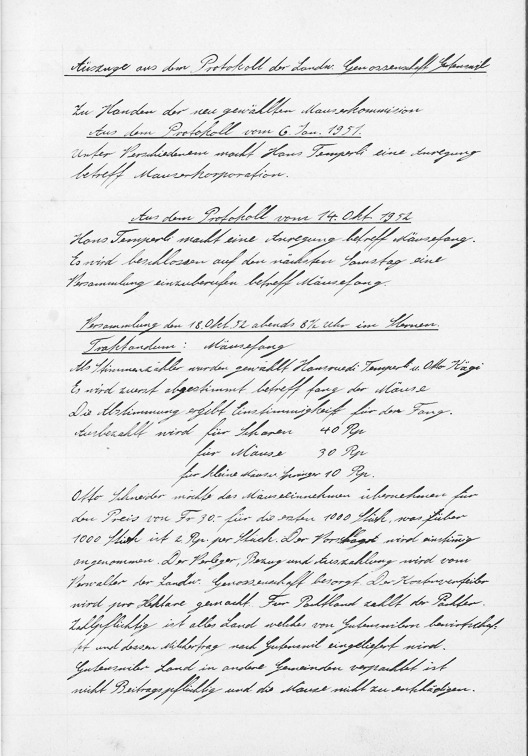 Auszuge aus dem Protokoll der Landw. Genossenschaft Gutenswil
Zu Handen der neu gewählten Mauserkommision
Aus dem Protokoll vom 6. Jan. 1951.
Unter Verschiedenem macht Hans Temperli eine Anregung
betreff Mauserkorporation.
Aus dem Protokoll vom 14. Okt. 1952
Hans Temperli macht eine Anregung betreff Mäusefang.
Es wird beschlossen auf den nächsten Samstag eine
Versammlung einzuberufen betreff Mäusefang.
Versammlung den 18. Okt. 52 abends 8½ Uhr im Sternen.
Traktandum: Mäusefang
Als Stimmenzähler wurden gewählt Hansruedi Temperli u. Otto Kägi
Es wird zuerst abgestimmt betreff fang der Mäuse
Die Abstimmung ergibt Einstimmigkeit für den Fang.
Ausbezahlt wird für Scharen 40 Rp
für Mäuse 30 Rp
für kleine Mause Springer 10 Rp.
Otto Schneider möchte das Mäuseeinnehmen übernehmen für
den Preis von Fr 30.- für die ersten 1000 Stück, was über
1000 Stück ist 2 Rp. per Stück. Der Vorschlag wird einstimig
angenommen. Der Verleger, Bezug und Auszahlung wird vom
Verwalter der Landw. Genossenschaft besorgt. Der Kostenverteiler
wird pro Hektare gemacht. Für Pachtland zahlt der Pächter.
Zahlpflichtig ist alles Land welches von Gutenswilern bewirtschaf.
tet und dessen Milchertrag nach Gutenswil eingeliefert wird.
Gutenswiler Land in andere Gemeinden verpachtet ist
nicht Beitragspflichtig und die Mäuse nicht zu entschädigen.